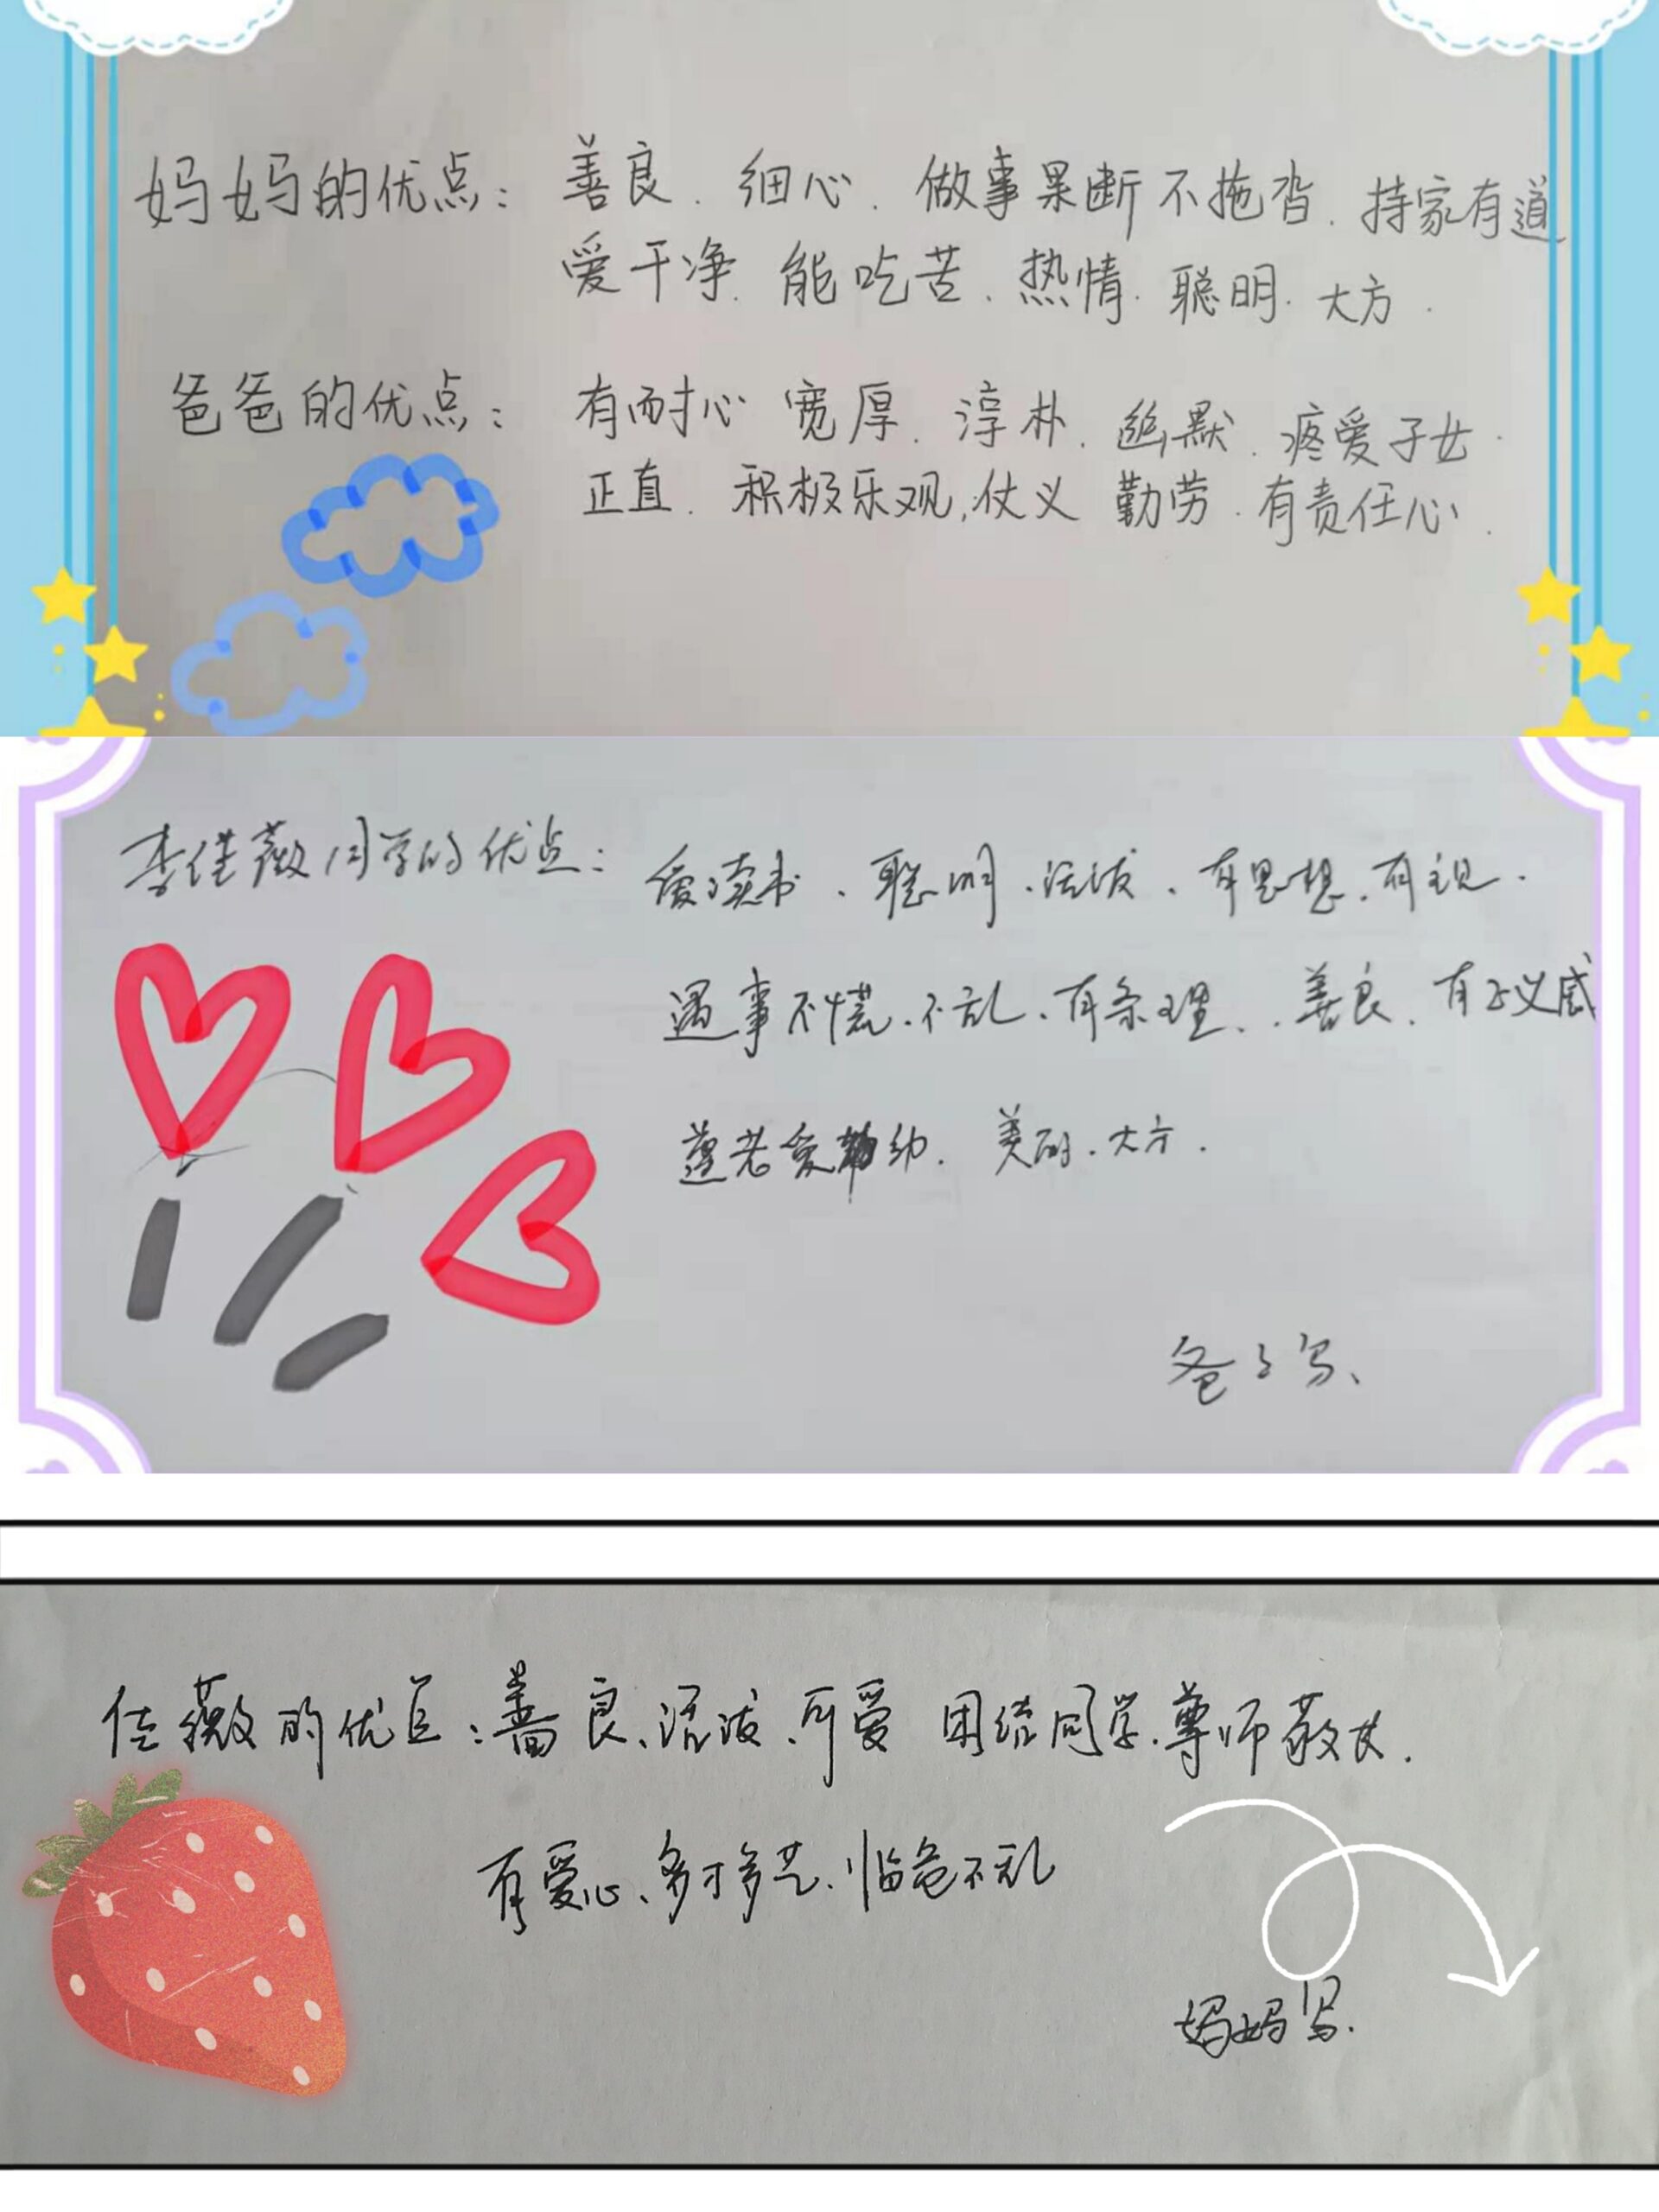 妈妈的优点：善良、细心、做事果断不拖沓、持家有道
爱干净、能吃苦、热情、聪明、大方.
爸爸的优点：有耐心 宽厚、淳朴、幽默、疼爱子女.
正直、积极乐观、仗义 勤劳、有责任心.
李佳薇同学的优点：爱读书、聪明、活泼、有思想、有主见.
遇事不慌、不乱、有条理、善良、有正义感
尊老爱幼、美丽、大方.
爸爸写、
佳薇的优点：善良、活泼、可爱 团结同学、尊师敬长.
有爱心、多才多艺、临危不乱
妈妈写.